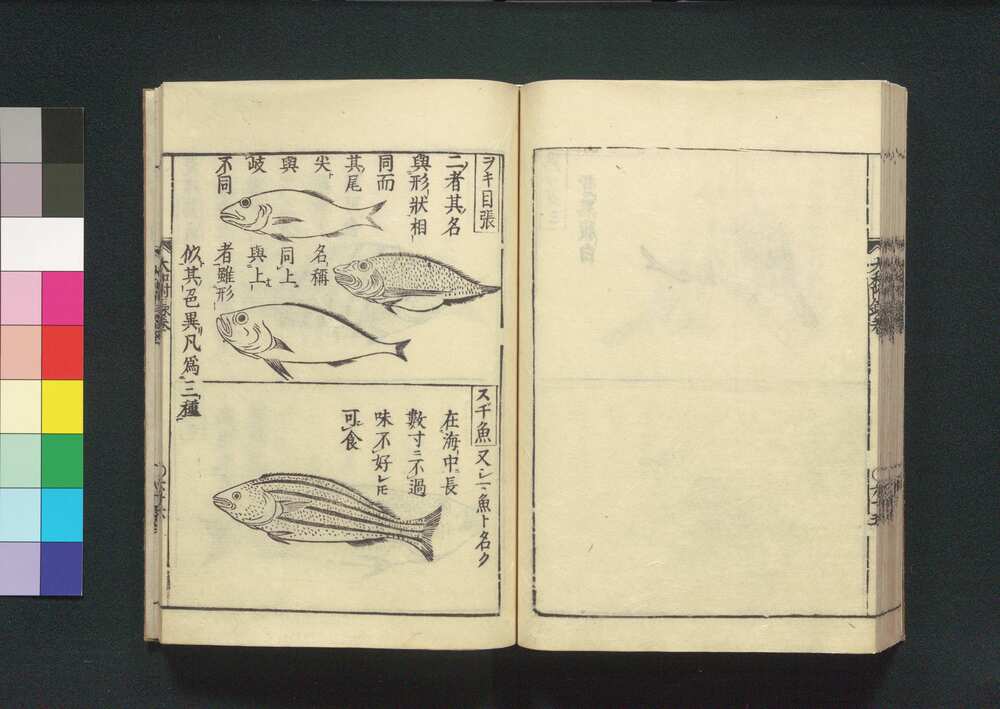 ヲキ目張
二者其名
與形狀相
同而
其尾
尖
與
歧
不同
名稱
同上
與上
者雖形
似其色異凡爲三種
スヂ魚
又シマ魚ト名ク
在海中長
數寸ニ不過
味不好レ𪜈
可食